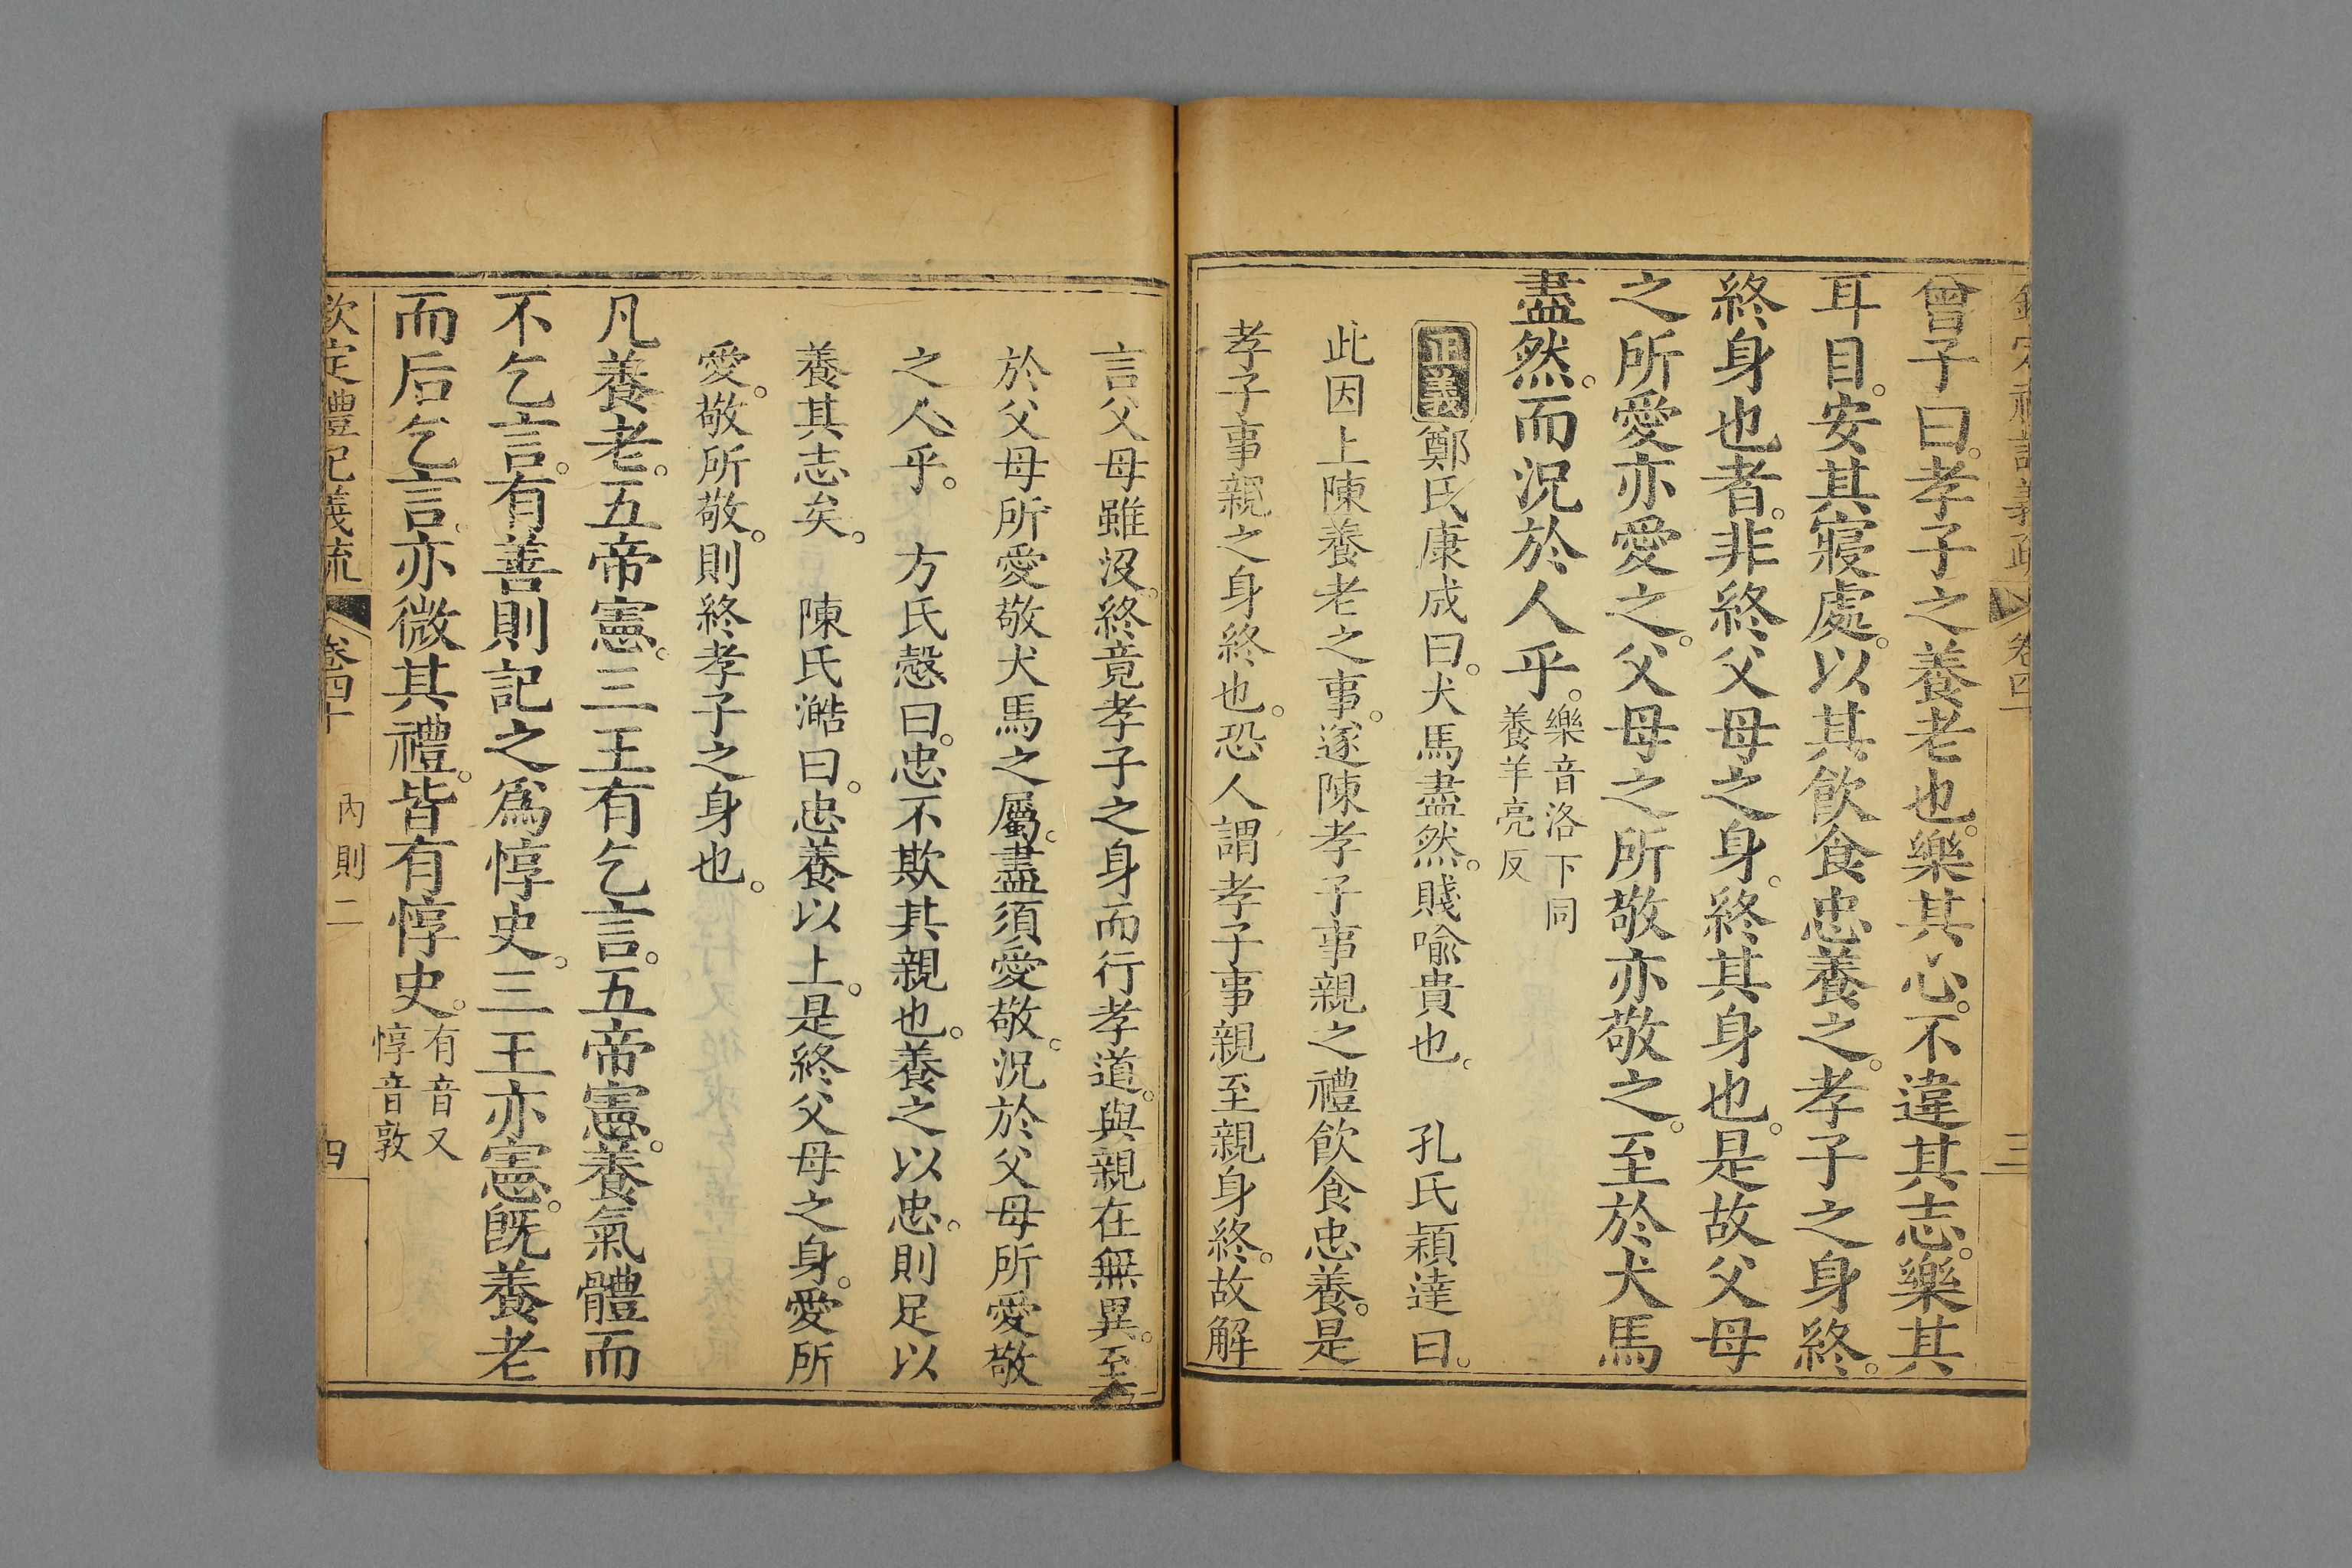 欽定禮記義疏 卷四十 三
曾子曰。孝子之養老也。樂其心。不違其志。樂其
耳目。安其寢處。以其飲食忠養之。孝子之身終。
終身也者。非終父母之身。終其身也。是故父母
之所愛亦愛之。父母之所敬亦敬之。至於犬馬
盡然。而況於人乎。樂音洛下同
養羊亮反
正義鄭氏康成曰。犬馬盡然。賤喻貴也。 孔氏穎達曰。
此因上陳養老之事。遂陳孝子事親之禮飲食忠養。是
孝子事親之身終也。恐人謂孝子事親至親身終。故解
言父母雖沒。終竟孝子之身而行孝道。與親在無異。至
於父母所愛敬犬馬之屬。盡須愛敬。況於父母所愛敬
之人乎。 方氏慤曰。忠不欺其親也。養之以忠。則足以
養其志矣。 陳氏澔曰。忠養以上。是終父母之身。愛所
愛。敬所敬。則終孝子之身也。
凡養老。五帝憲。三王有乞言。五帝憲。養氣體而
不乞言。有善則記之為惇史。三王亦憲。旣養老
而后乞言。亦微其禮。皆有惇史。有音又
惇音敦
欽定禮記義疏 卷四十 內則二 四